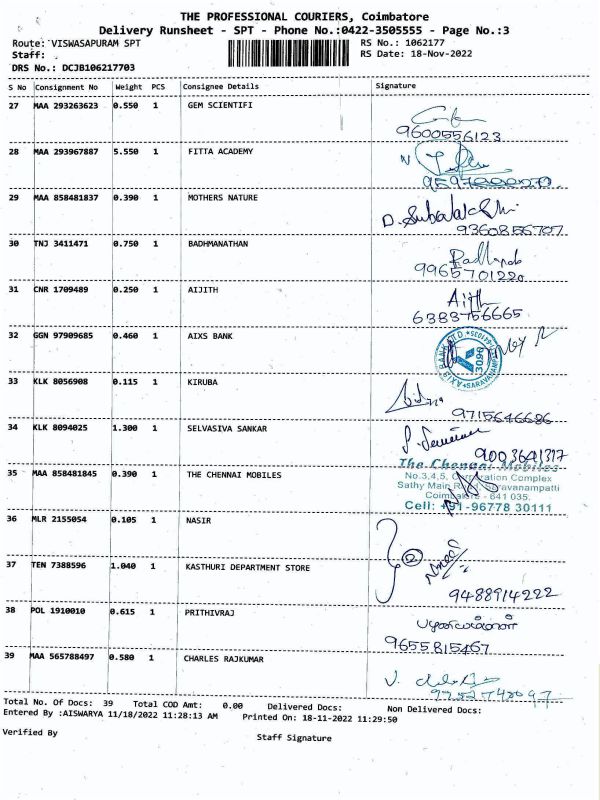 THE PROFESSIONAL COURIERS, Coimbatore
Delivery Runsheet - SPT - Phone No.:0422-3505555 - Page No.:3
Route: VISWASAPURAM SPT RS No.: 1062177
Staff: RS Date: 18-Nov-2022
DRS No.: DCJB106217703
S No Consignment No Weight PCS Consignee Details Signature
27 MAA 293263623 0.550 1 GEM SCIENTIFI
9600556123
28 MAA 293967887 5.550 1 FITTA ACADEMY
29 MAA 858481837 0.390 1 MOTHERS NATURE
D. Subalakshmi
9360856707
30 TNJ 3411471 0.750 1 BADHMANATHAN
9965701220
31 CNR 1709489 0.250 1 AIJITH
Ajith
6383756665
32 GGN 97909685 0.460 1 AIXS BANK
33 KLK 8056908 0.115 1 KIRUBA
9715646686
34 KLK 8094025 1.300 1 SELVASIVA SANKAR
9003641317
35 MAA 858481845 0.390 1 THE CHENNAI MOBILES
The Chennai Mobiles
No.3,4,5, Corporation Complex
Sathy Main Road, Saravanampatti
Coimbatore - 641 035.
Cell: +91-96778 30111
36 MLR 2155054 0.105 1 NASIR
37 TEN 7388596 1.040 1 KASTHURI DEPARTMENT STORE
9488914222
38 POL 1910010 0.615 1 PRITHIVRAJ
9655815467
39 MAA 565788497 0.580 1 CHARLES RAJKUMAR
Total No. Of Docs: 39 Total COD Amt: 0.00 Delivered Docs: Non Delivered Docs:
Entered By :AISWARYA 11/18/2022 11:28:13 AM Printed On: 18-11-2022 11:29:50
Verified By Staff Signature